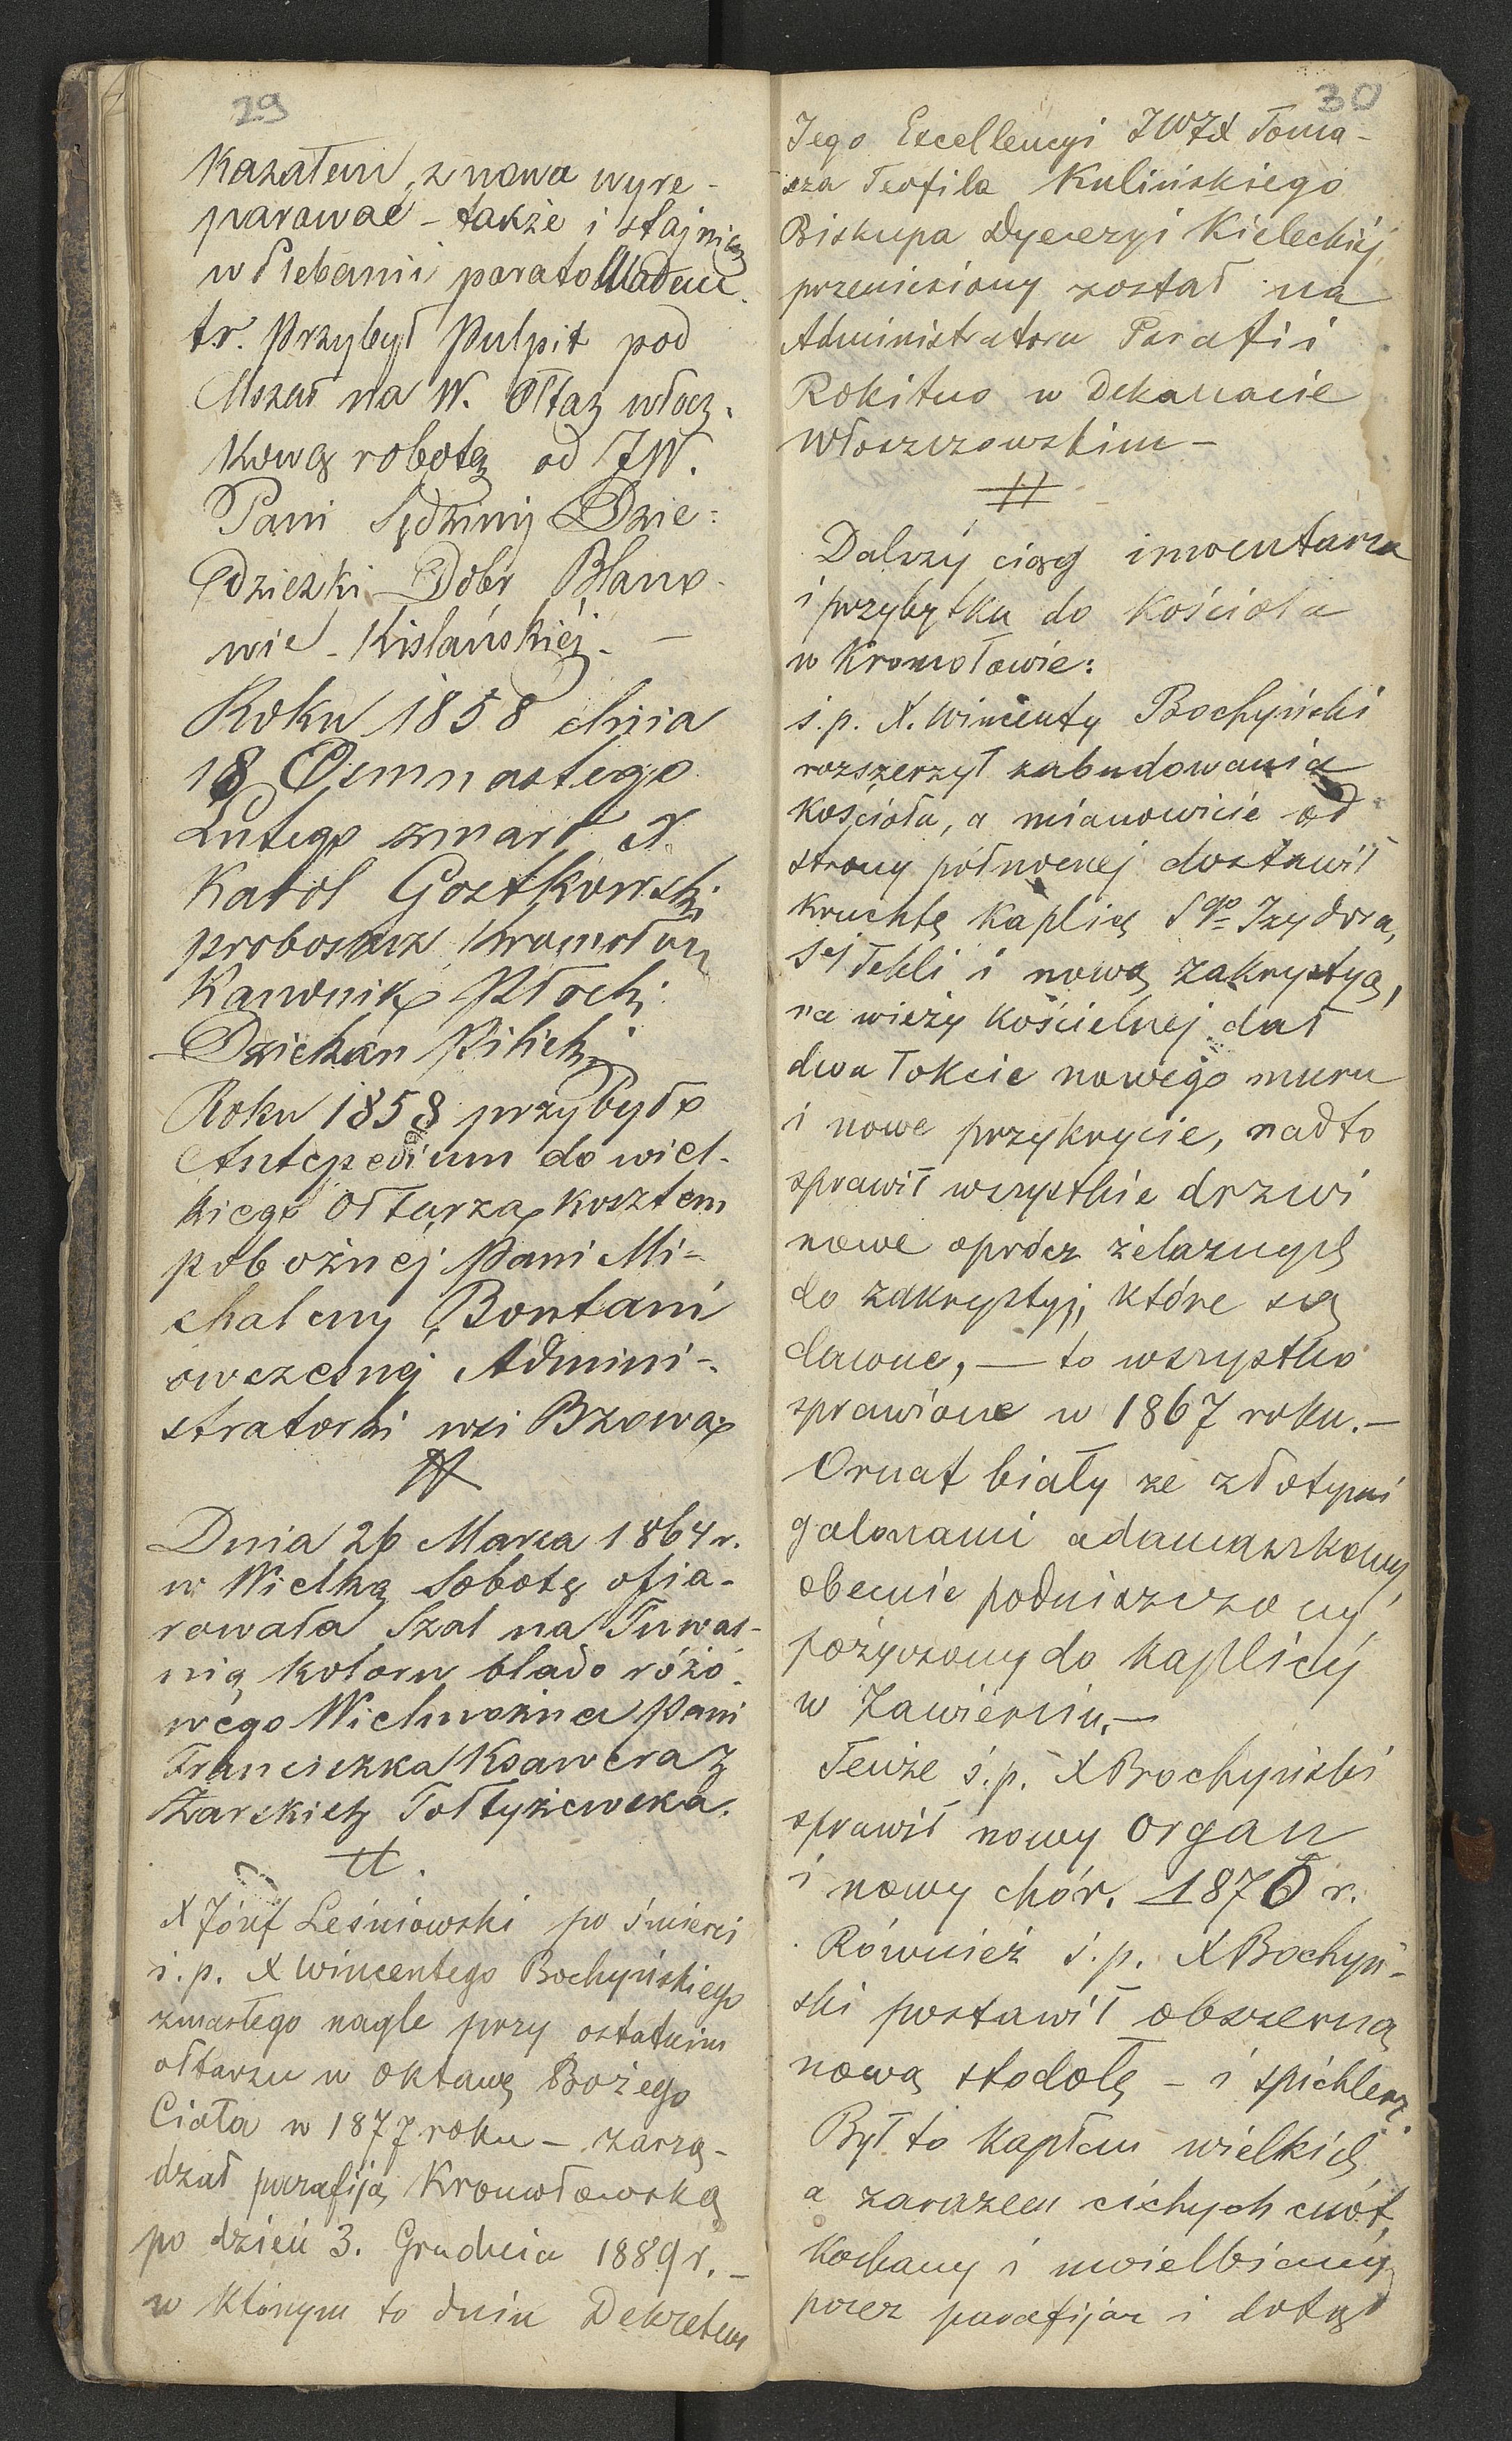 29
Kazałem z nowa wyre-
parować - także i stajnią
w Plebanii
tr. Przybył Pulpit pod
Mszał na W. Ołtaz włócz.
kową robotą od JW.
Pani Sędziny Dzie=
dziczki Dobr Blano-
wic - Kislańskiéj. —
Roku 1858 dnia
18 Osmnastego
Lutego zmarł X.
Karol Gostkowski
proboszcz Kromołow
Kanonik Płocki
Dziekan Pilicki
Roku 1858 przybyło
Antepedium do wiel-
kiego Ołtarza kosztem
pobożnej Pani Mi-
chaleny Bontani
owczesnej Admini-
stratorki wsi Bzowa
#
Dnia 26 Marca 1864 r.
w Wielką Sobotę ofia-
rowała Szal na Tuwal-
nią koloru blado różo-
wego Wielmożna Pani
Franciszka Ksawera z
Żarskich Tołtyżewska.
#.
X Józef Leśniowski po śmierci
ś. p. X Wincentego Bochyńskiego
zmarłego nagle przy ostatnim
ołtarzu w Oktawę Bożego
Ciała w 1877 roku - zarzą-
dzał parafiją Kromołowską
po dzień 3. Grudnia 1889 r. -
w którym to dniu Dekretem
30
Jego Excellencyi JWJX Toma-
sza Teofila Kulińskiego
Biskupa Dyecezyi Kieleckiéj
przeniesiony został na
Administratora Parafii
Rokitno w Dekanacie
Włoszczowskim -
#
Dalszy ciąg inwentarza
i przybytku do Kościoła
w Kromołowie:
ś. p. X. Wincenty Bochyński
rozszerzył zabudowania
kościoła, a mianowicie od
strony północnej dostawił
kruchtę kaplicę Sgo Izydora,
Sej Tekli i nową zakrystyą,
na wieży kościelnej dał
dwa łokcie nowego muru
i nowe przykrycie, nadto
sprawił wszystkie drzwi
nowe oprócz żelaznych
do zakrystyj, które są
dawne, — to wszystko
sprawione w 1867 roku. —
Ornat biały ze złotymi
galonami adamaszkowy,
obecnie podniszczony
pożyczony do kaplicy
w Zawierciu. —
Tenże ś. p. X Bochyński
sprawił nowy organ
i nowy chór. 1876 r.
Również ś. p. X Bochyń-
ski postawił obszerną
nową stodołę - i spichlerz.
Był to kapłan wielkich
a zarazem cichych cnót,
kochany i uwielbiany
przez parafijan i dotąd